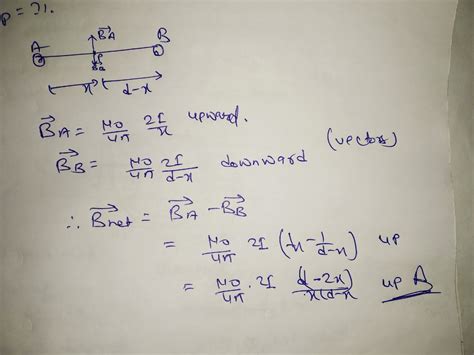 P = ?1.
A B⃗A B
P
BB
x d-x
B⃗A = μ0/4π 2I/x upward.
B⃗B = μ0/4π 2I/d-x downward (vectors)
∴ B⃗net = B⃗A - B⃗B
= μ0/4π 2I (1/x - 1/d-x) up
= μ0/4π . 2I (d-2x)/x(d-x) up A